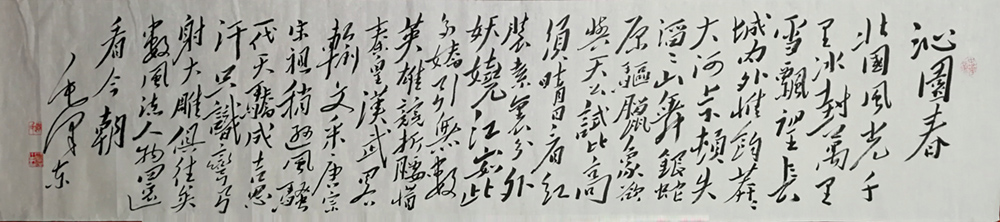 沁園春
北國風光千
里冰封萬里
雪飄望長
城内外惟餘莽々
大河上下頓失
滔々山舞銀蛇
原驅臘象欲
與天公試比高
須晴日看紅
裝素裹分外
妖嬈江山如此
多嬌引無數
英雄競折腰惜
秦皇漢武略
輸文采唐宗
宋祖稍遜風騷
一代天驕成吉思
汗只識彎弓
射大雕俱往矣
數風流人物還
看今朝
毛澤東